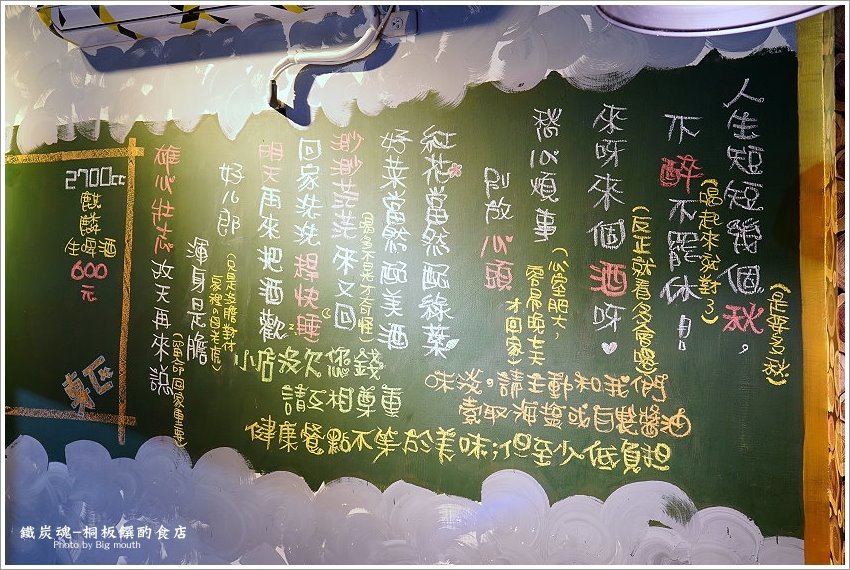 人生短短幾個秋，
(是要多秋)
不醉不罷休！
(喝起來就對了)
來呀來個酒呀。
(反正就看多會噓)
愁心煩事
(心室肥大，
容易晚七天
才回家)
別放心頭
紅花當然配綠葉
好菜當然配美酒
渺渺茫茫來又回
(喝多不是才有怪)
回家洗洗趕快睡
明天再來把酒歡
好儿郎
渾身是膽
雄心壯志改天再來說
小店沒欠您錢
請互相尊重
味淡。請主動和我們
索取海鹽或自製醬油
健康餐點不等於美味；但至少低負担
2700cc
麒麟
生啤酒
600
元
東區
鐵炭魂-桐板饌酌食店
Photo by Big mouth